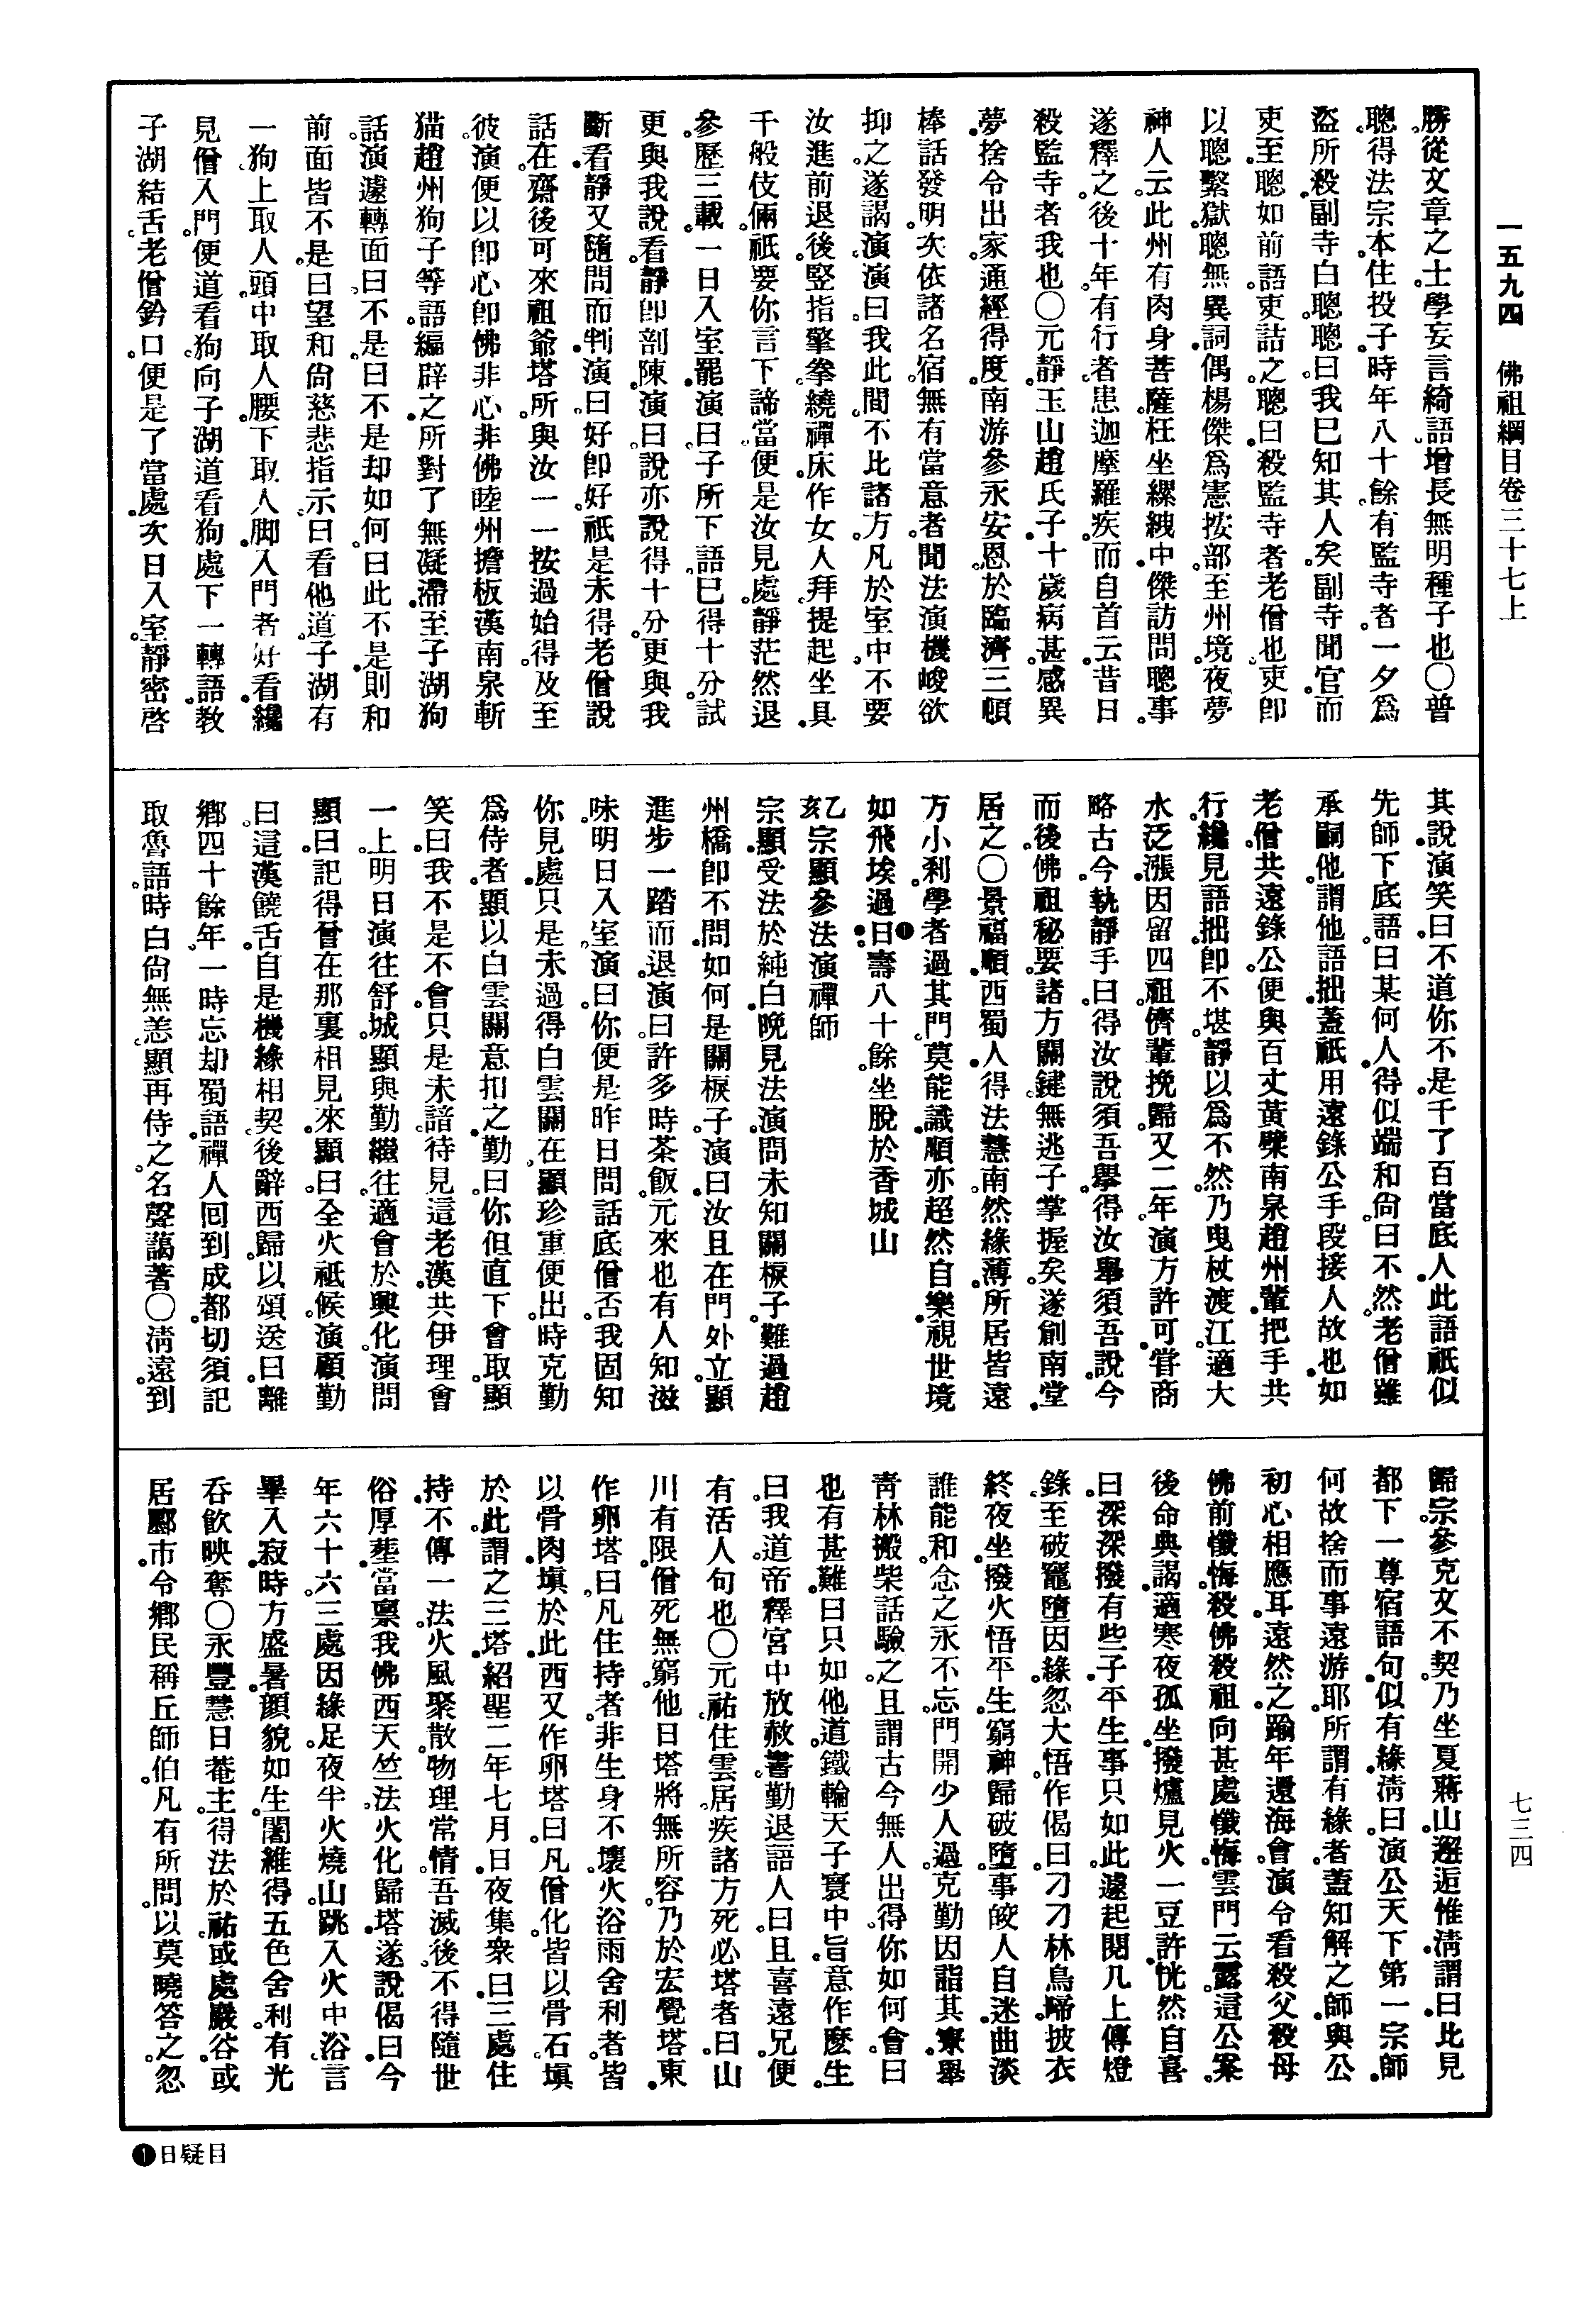 一五九四　佛祖綱目卷三十七上
七三四
勝。從文章之士。學妄言綺語。增長無明種子也○普
聰。得法宗本。住投子。時年八十餘。有監寺者。一夕爲
盜所殺。副寺白聰。聰曰。我已知其人矣。副寺聞官。而
吏至。聰如前語。吏詰之。聰曰。殺監寺者。老僧也。吏卽
以聰繫獄。聰無異詞。偶楊傑爲憲。按部至州境。夜夢
神人云。此州有肉身菩薩。枉坐縲絏中。傑訪問聰事。
遂釋之。後十年。有行者。患迦摩羅疾。而自首云。昔日
殺監寺者。我也○元靜。玉山趙氏子。十歲病甚。感異
夢。捨令出家。通經得度。南游參永安恩。於臨濟三頓
棒話發明。次依諸名宿。無有當意者。聞法演機峻。欲
抑之。遂謁演。演曰。我此間不比諸方。凡於室中。不要
汝進前退後。竪指擎拳。繞禪床作女人拜。提起坐具。
千般伎倆。祇要你言下諦當。便是汝見處。靜茫然退
參。歷三載。一日入室罷。演曰。子所下語。已得十分。試
更與我說看。靜卽剖陳。演曰。說亦說得十分。更與我
斷看。靜又隨問而判。演曰。好卽好。祇是未得老僧說
話在。齋後可來祖爺塔所。與汝一一按過始得。及至
彼。演便以卽心卽佛。非心非佛。睦州擔板漢。南泉斬
猫。趙州狗子等語。編辟之。所對了無凝滯。至子湖狗
話。演遽轉面曰。不是。曰不是却如何。曰此不是。則和
前面皆不是。曰望和尙慈悲指示。曰看他道。子湖有
一狗。上取人頭。中取人腰。下取人脚。入門者好看。纔
見僧入門。便道看狗。向子湖道看狗處。下一轉語。教
子湖結舌。老僧鈐口。便是了當處。次日入室。靜密啓
其說。演笑曰。不道你不是。千了百當底人。此語祇似
先師下底語。曰某何人。得似端和尙。曰不然。老僧雖
承嗣他。謂他語拙。蓋祇用遠錄公手段接人故也。如
老僧共遠錄公。便與百丈黃檗南泉趙州輩。把手共
行。纔見語拙。卽不堪。靜以爲不然。乃曳杖渡江。適大
水泛漲。因留四祖。儕輩挽歸。又二年。演方許可。嘗商
略古今。執靜手曰。得汝說。須吾擧。得汝舉。須吾說。今
而後。佛祖秘要。諸方關鍵。無逃子掌握矣。遂創南堂。
居之○景福順。西蜀人。得法慧南。然緣薄。所居皆遠
方小刹。學者過其門。莫能識。順亦超然自樂。視世境
如飛埃過❶日。壽八十餘。坐脫於香城山
乙亥宗顯參法演禪師
宗顯。受法於純白。晚見法演。問未知關棙子。難過趙
州橋。卽不問。如何是關棙子。演曰。汝且在門外立。顯
進步一踏而退。演曰。許多時茶飯。元來也有人知滋
味。明日入室。演曰。你便是昨日問話底僧否。我固知
你見處。只是未過得白雲關在。顯珍重便出。時克勤
爲侍者。顯以白雲關意扣之。勤曰。你但直下會取。顯
笑曰。我不是不會。只是未諳。待見這老漢。共伊理會
一上。明日演往舒城。顯與勤繼往。適會於興化。演問
顯曰。記得曾在那裏相見來。顯曰。全火祇候。演顧勤
曰。這漢饒舌。自是機緣相契。後辭西歸。以頌送曰。離
鄉四十餘年。一時忘却蜀語。禪人囘到成都。切須記
取魯語。時白尙無恙。顯再侍之。名聲藹著○淸遠。到
歸宗參克文。不契。乃坐夏蔣山。邂逅惟淸。謂曰。比見
都下一尊宿語句。似有緣。淸曰。演公天下第一宗師。
何故捨而事遠游耶。所謂有緣者。蓋知解之師。與公
初心相應耳。遠然之。踰年還海會。演令看殺父殺母。
佛前懺悔。殺佛殺祖。向甚處懺悔。雲門云。露。這公案。
後命典謁。適寒夜孤坐。撥爐見火一豆許。恍然自喜
曰。深深撥。有些子。平生事。只如此。遽起閱几上傳燈
錄。至破竈墮因緣。忽大悟。作偈曰。刁刁林鳥啼。披衣
終夜坐。撥火悟平生。窮神歸破墮。事皎人自迷。曲淡
誰能和。念之永不忘。門開少人過。克勤因詣其寮。舉
靑林搬柴話驗之。且謂古今無人出得。你如何會。曰
也有甚難。曰只如他道鐵輪天子寰中旨。意作麽生。
曰。我道帝釋宮中放赦書。勤退語人曰。且喜遠兄便
有活人句也○元祐。住雲居。疾諸方死必塔者。曰。山
川有限。僧死無窮。他日塔將無所容。乃於宏覺塔東。
作卵塔。曰。凡住持者。非生身不壞。火浴雨舍利者。皆
以骨肉塡於此。西又作卵塔。曰。凡僧化。皆以骨石塡
於此。謂之三塔。紹聖二年七月。日夜集衆曰。三處住
持。不傳一法。火風聚散。物理常情。吾滅後。不得隨世
俗厚塟。當禀我佛西天竺法。火化歸塔。遂說偈曰。今
年六十六。三處因緣足。夜半火燒山。跳入火中浴。言
畢入寂。時方盛暑。顔貌如生。闍維得五色舍利。有光
吞飮映奪○永豐慧日菴主。得法於祐。或處巖谷。或
居郾市。令鄉民稱丘師伯。凡有所問。以莫曉答之。忽
❶日疑目